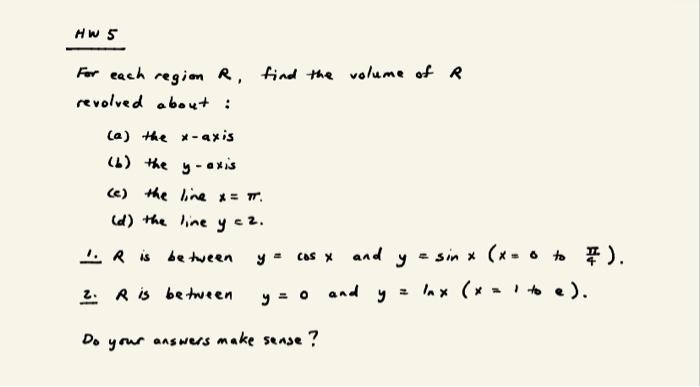 HW 5
For each region R, find the volume of R
revolved about :
(a) the x-axis
(b) the y-axis
(c) the line x = π.
(d) the line y = 2.
1. R is between y = cos x and y = sin x (x = 0 to π/4).
2. R is between y = 0 and y = ln x (x = 1 to e).
Do your answers make sense?